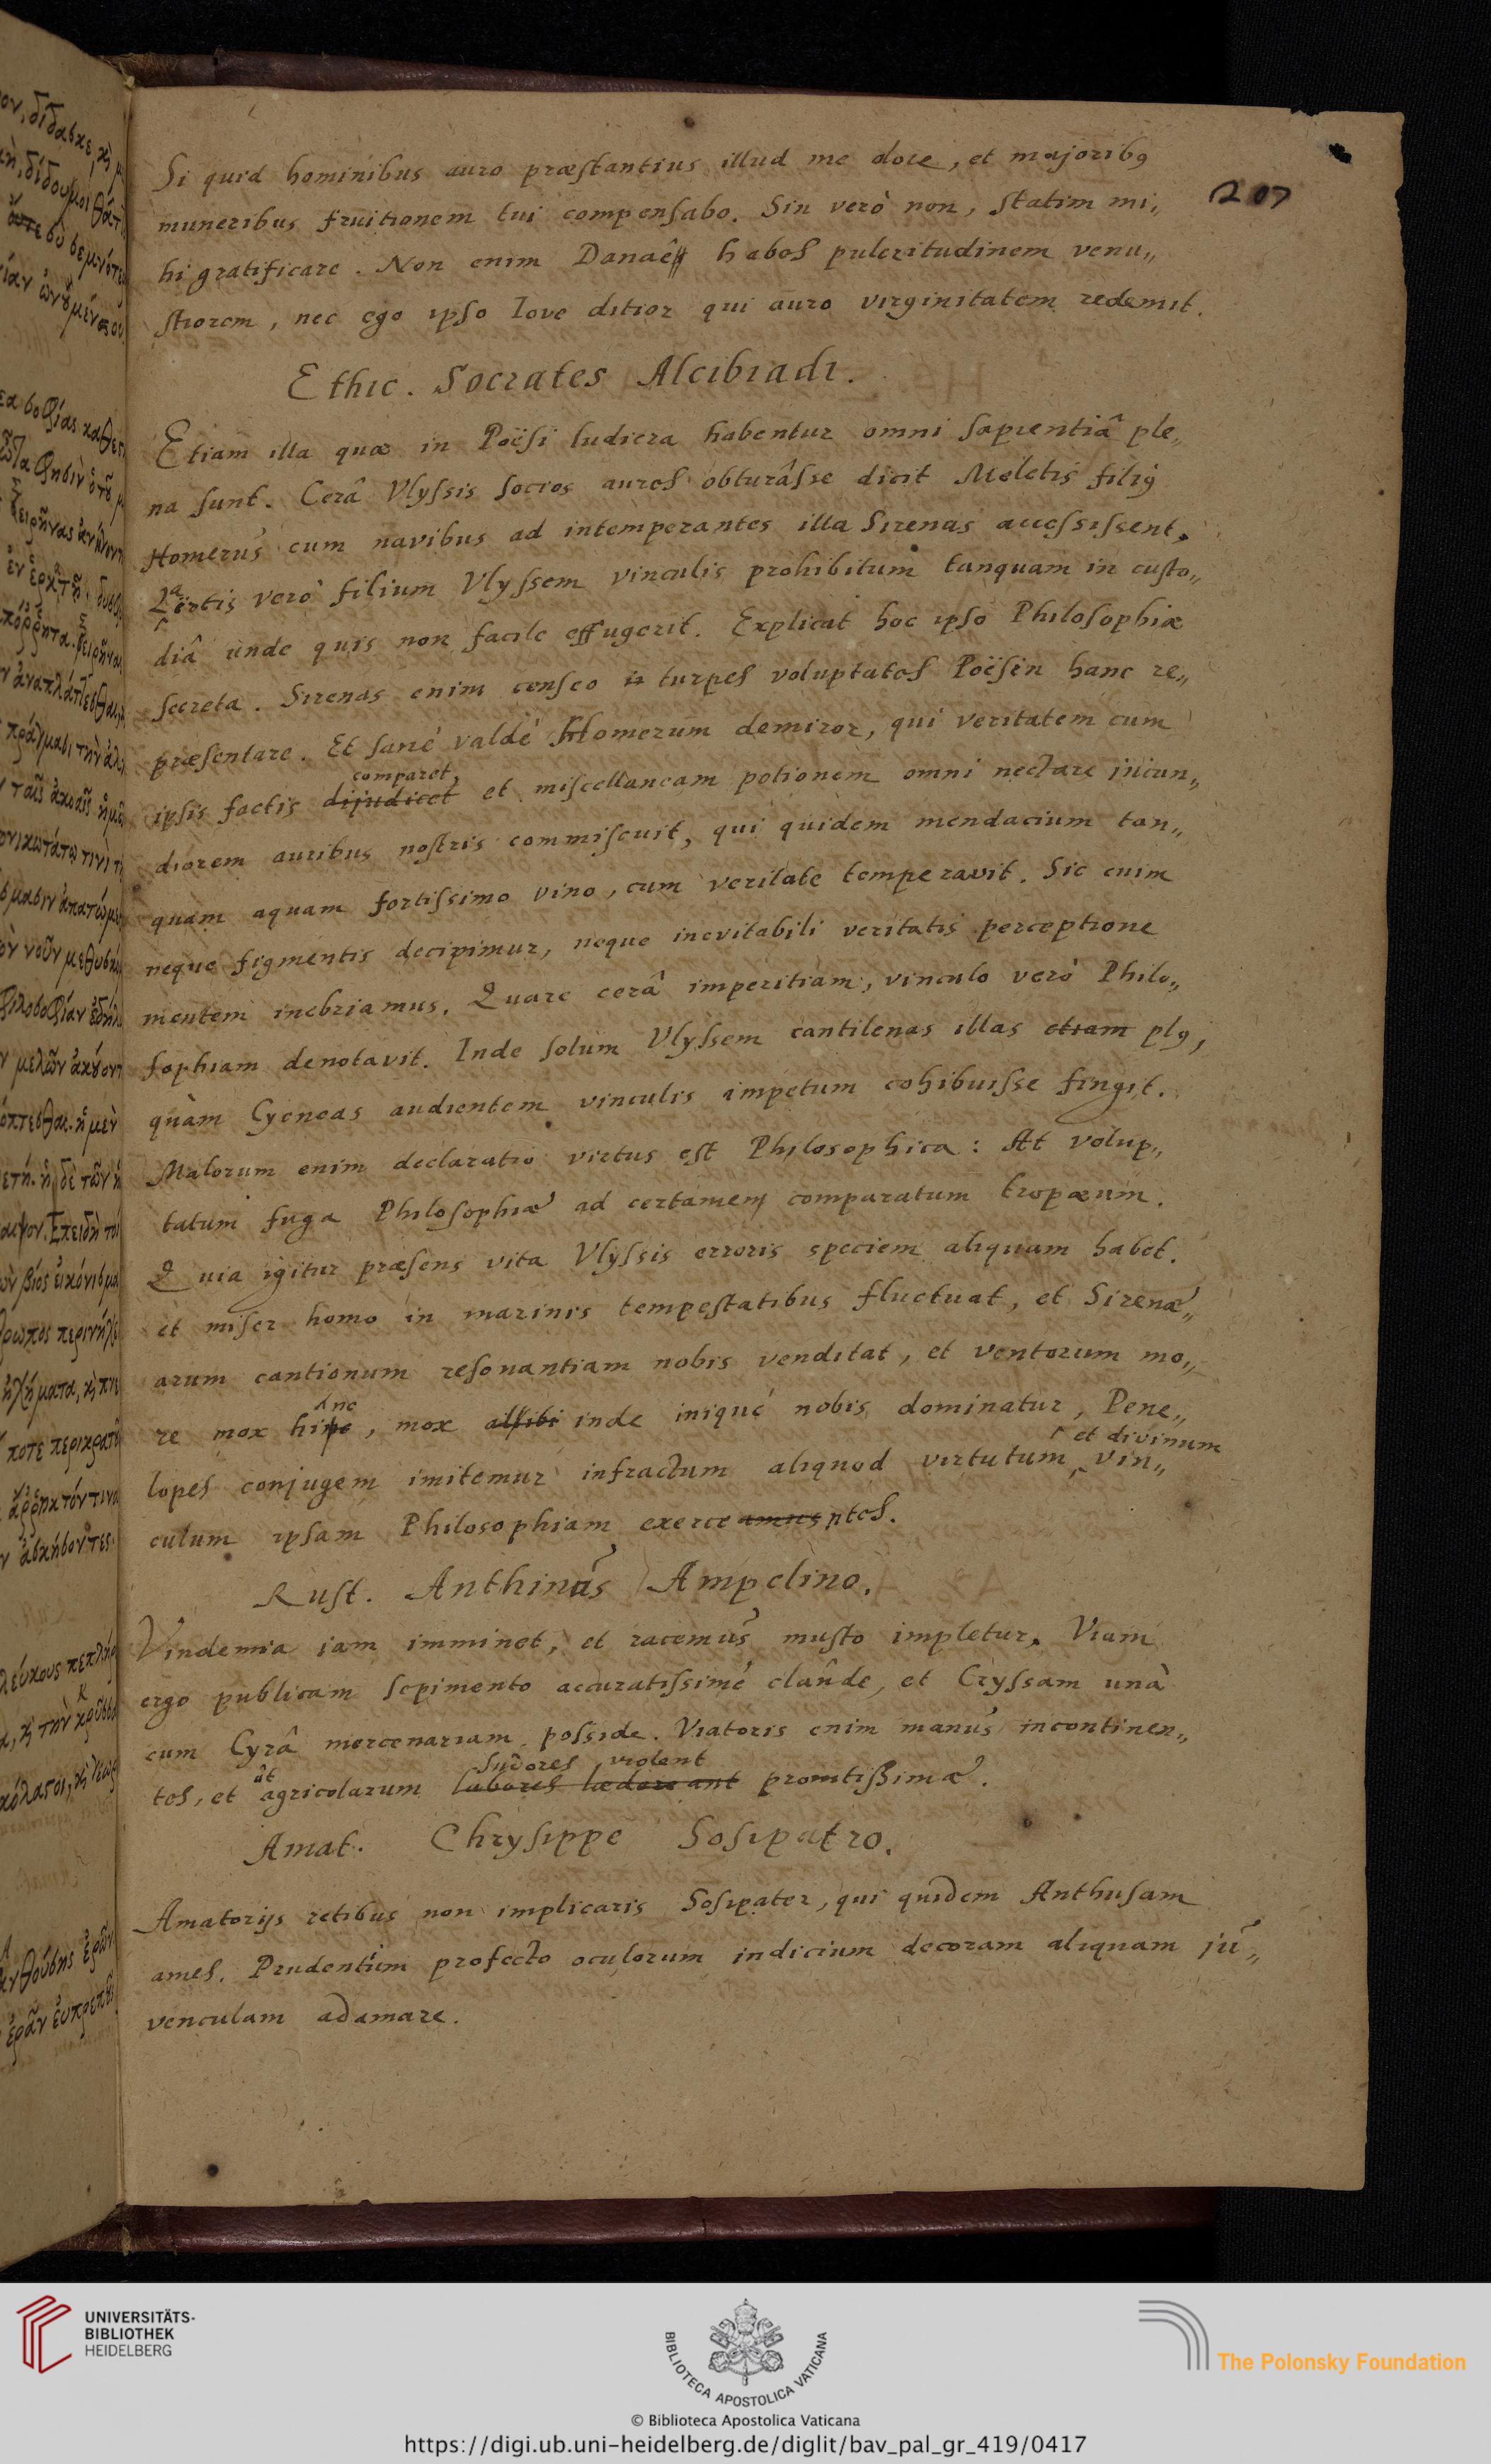 Si quid hominibus auro præstantius illud me doce, et majoribꝰ
207
muneribus fruitionem tui compensabo. Sin verò non, statim mi„
hi gratificare. Non enim Danaê habes pulcritudinem venu„
stiorem, nec ego ipso Iove ditior qui auro virginitatem redemit.
Ethic. Socrates Alcibiadi.
Etiam illa quæ in Poësi ludicra habentur omni sapientiâ ple„
na sunt. Cerâ Vlyssis socios aures obturâsse dicit Meletis filiꝰ
Homerus cum navibus ad intemperantes illa Sirenas accessissent.
Laërtis verò filium Vlyssem vinculis prohibitum tanquam in custo„
diâ unde quis non facile effugerit. Explicat hoc ipso Philosophiæ
secreta. Sirenas enim censeo turpes voluptates Poësin hanc re„
præsentare. Et sanè valdè Homerum demiror, qui veritatem cum
comparet,
ipsis factis dijudicet et miscellaneam potionem omni nectare jucun„
diorem auribus nostris commiscuit, qui quidem mendacium tan„
quam aquam fortissimo vino, cum veritate temperavit. Sic enim
neque figmentis decipimur, neque inevitabili veritatis perceptione
mentem inebriamus. Quare cerâ imperitiam, vinculo verò Philo„
sophiam denotavit. Inde solum Vlyssem cantilenas illas etiam plꝰ,
quàm Cycneas audientem vinculis impetum cohibuisse fingit.
Malorum enim declaratio virtus est Philosophica: At volup„
tatum fuga Philosophiæ ad certamen comparatum tropæum.
Quia igitur præsens vita Vlyssis erroris speciem aliquam habet.
et miser homo in marinis tempestatibus fluctuat, et Sirenæ„
arum cantionum resonantiam nobis venditat, et ventorum mo„
inc
re mox hinc, mox alibi inde iniquè nobis dominatur, Pene„
et divinum
lopes conjugem imitemur infractum aliquod virtutum vin„
culum ipsam Philosophiam exerceamusntes.
Rust. Anthinus Ampelino.
Vindemia jam imminet, et racemus musto impletur. Viam
ergo publicam sepimento accuratissimè claude, et Cryssam unà
cum Cyrâ mercenariam posside. Viatoris enim manus incontinen„
ut sudores violent
tes, et agricolarum labores lædere ant promtißimæ.
Amat. Chrysippe Sosipatro.
Amatorijs retibus non implicaris Sosipater, qui quidem Anthusam
ames. Prudentum profecto oculorum indicium decoram aliquam ju„
venculam adamare.
UNIVERSITÄTS-
BIBLIOTHEK
HEIDELBERG
BIBLIOTECA APOSTOLICA VATICANA
The Polonsky Foundation
© Biblioteca Apostolica Vaticana
https://digi.ub.uni-heidelberg.de/diglit/bav_pal_gr_419/0417